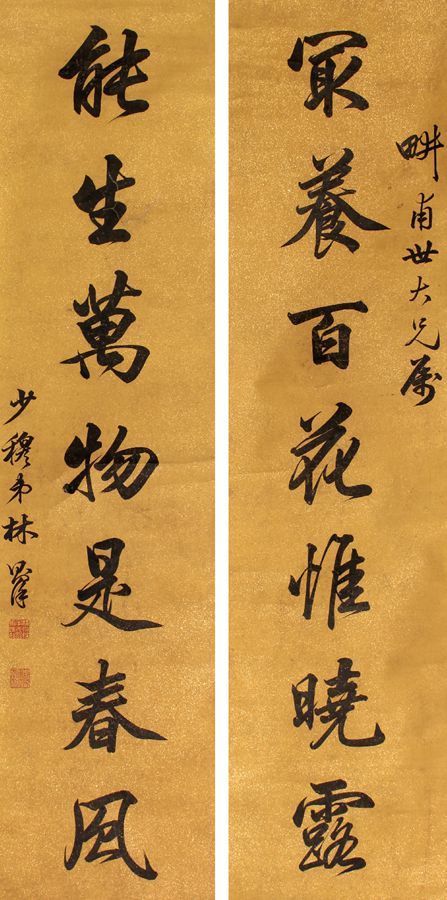 畊南世大兄属
冣養百花惟曉露
能生萬物是春風
少穆弟林則徐